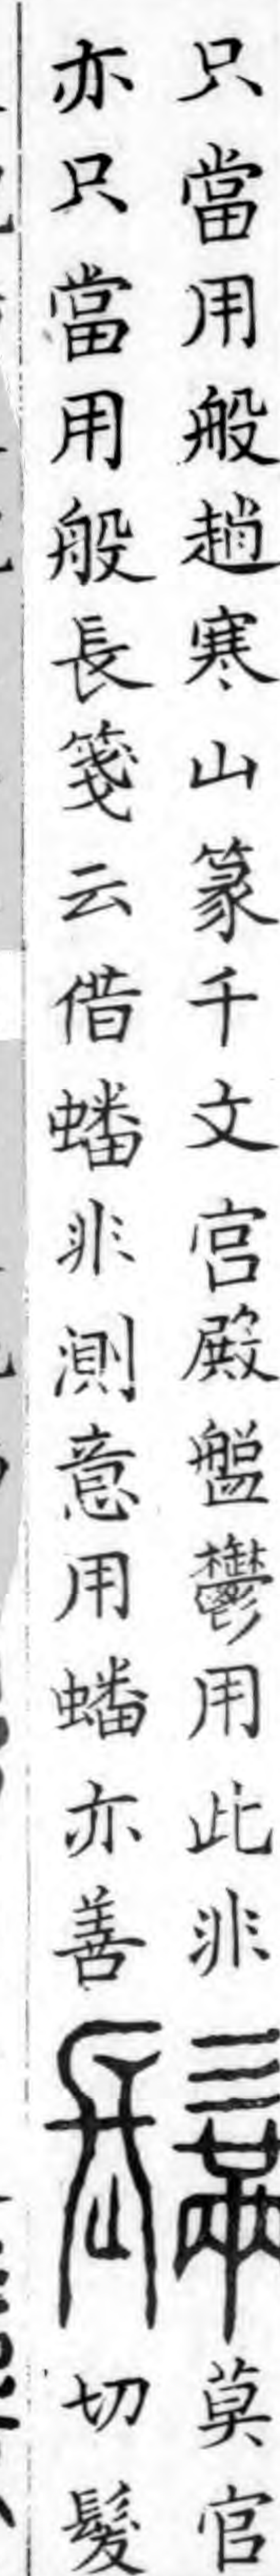 只當用般趙寒山篆千文宫殿盤鬱用此非
亦只當用般長箋云借蟠非測意用蟠亦善
鬗
莫官
切髮